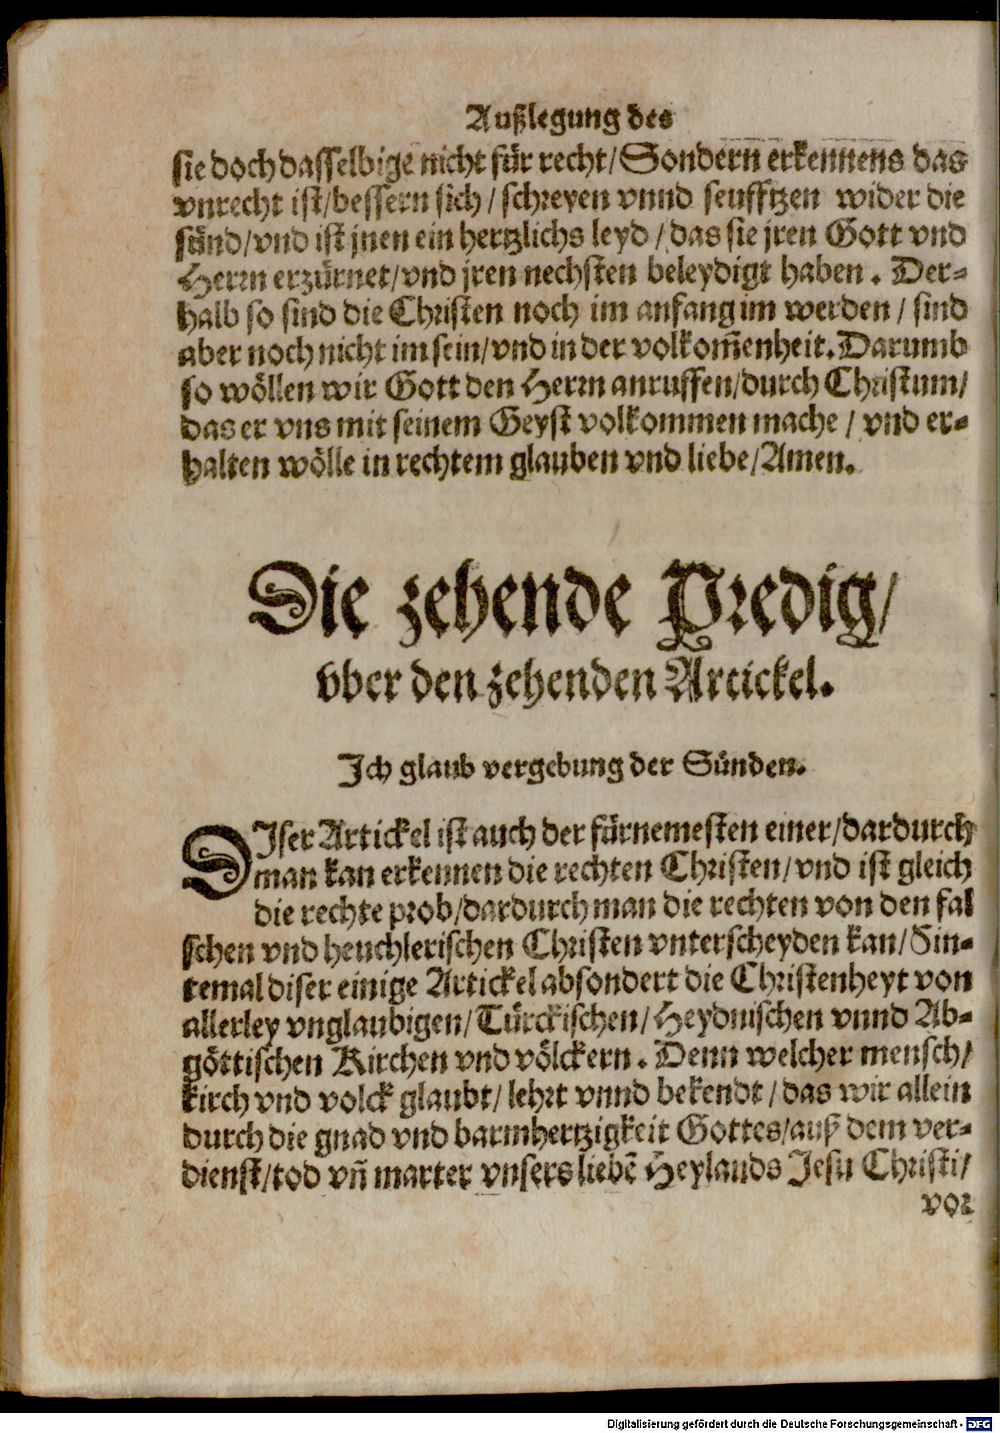 Außlegung des
sie doch dasselbige nicht für recht/ Sondern erkennens das
vnrecht ist/ bessern sich / schreyen vnnd seufftzen wider die
sünd/ vnd ist jnen ein hertzlichs leyd / das sie jren Gott vnd
Herrn erzürnet/ vnd jren nechsten beleydigt haben. Der-
halb so sind die Christen noch im anfang im werden / sind
aber noch nicht im sein/ vnd in der volkom̃enheit. Darumb
so wöllen wir Gott den Herrn anruffen/ durch Christum/
das er vns mit seinem Geyst volkommen mache / vnd er-
halten wölle in rechtem glauben vnd liebe/ Amen.
Die zehende Predig/
vber den zehenden Artickel.
Ich glaub vergebung der Sünden.
DIser Artickel ist auch der fürnemesten einer/ dardurch
man kan erkennen die rechten Christen/ vnd ist gleich
die rechte prob/ dardurch man die rechten von den fal
schen vnd heuchlerischen Christen vnterscheyden kan/ Sin-
temal diser einige Artickel absondert die Christenheyt von
allerley vnglaubigen/ Türckischen/ Heydnischen vnnd Ab-
göttischen Kirchen vnd völckern. Denn welcher mensch/
kirch vnd volck glaubt/ lehrt vnnd bekendt / das wir allein
durch die gnad vnd barmhertzigkeit Gottes/ auß dem ver-
dienst/ tod vñ marter vnsers liebẽ Heylands Jesu Christi/
vor
Digitalisierung gefördert durch die Deutsche Forschungsgemeinschaft - DFG